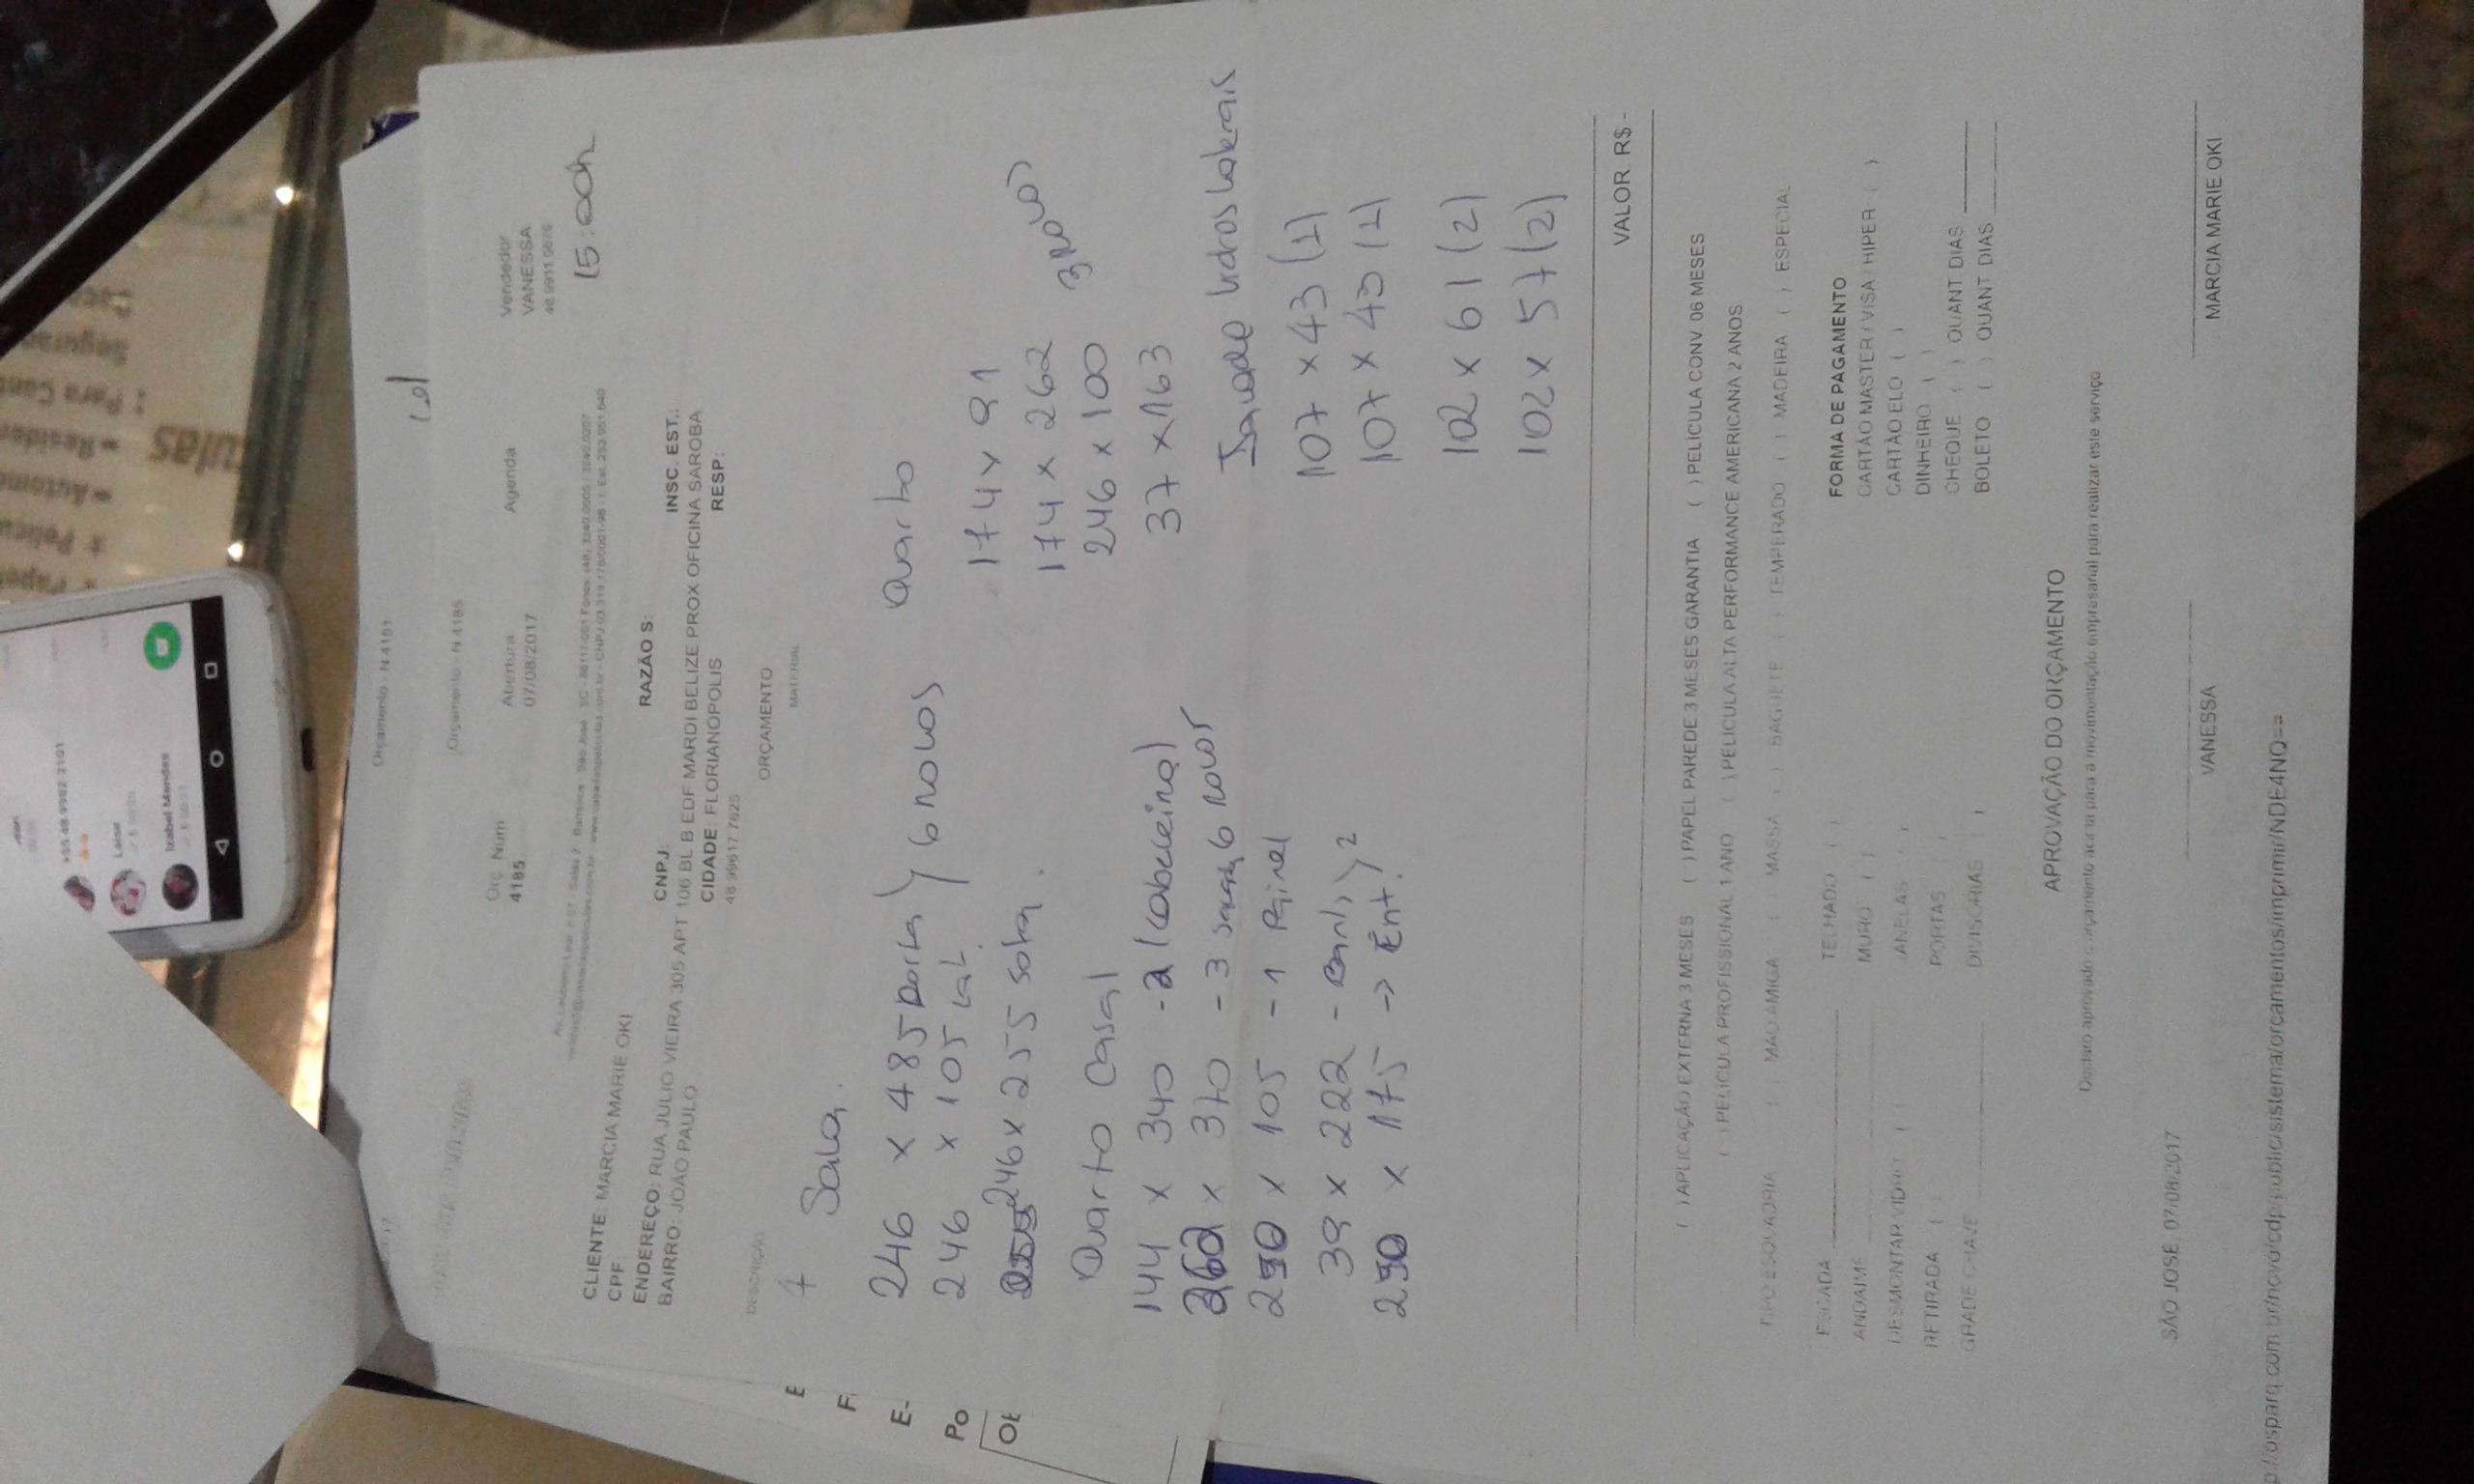 Orçamento - N 4181
cd
Orçamento - N 4185
Orç. Num
4185
Abertura
07/08/2017
Agenda
Vendedor
VANESSA
15:00h
CLIENTE: MARCIA MARIE OKI
RAZÃO S:
CPF:
CNPJ:
INSC. EST.:
ENDEREÇO: RUA JULIO VIEIRA 305 APT 106 BL B EDF MARDI BELIZE PROX OFICINA SAROBA
BAIRRO: JOÃO PAULO
CIDADE: FLORIANÓPOLIS
RESP:
48 99617 7625
ORÇAMENTO
DESCRIÇÃO
MATERIAL
Sala.
246 x 485 porta
246 x 105 lat.
6 novos
246 x 255 sofa.
Quarto Casal
144 x 340 - 2 (cabeceira)
260 x 370 - 3 sacada 6 novos
290 x 105 - 1 Painel
39 x 222
290 x 175 -> Ent.
Quarto
174 x 91
174 x 262
246 x 100
3 novos
37 x 163
vidros laterais
107 x 43 (1)
107 x 43 (1)
102 x 61 (2)
102 x 57 (2)
VALOR R$ -
( ) APLICAÇÃO EXTERNA 3 MESES ( ) PAPEL PAREDE 3 MESES GARANTIA ( ) PELÍCULA CONV 06 MESES
( ) PELÍCULA PROFISSIONAL 1 ANO ( ) PELICULA ALTA PERFORMANCE AMERICANA 2 ANOS
TIPO ESQUADRIA ( ) MÃO AMIGA ( ) MASSA ( ) BAGUETE ( ) TEMPERADO ( ) MADEIRA ( ) ESPECIAL
ESCADA
ANDAIME
DESMONTAR VIDRO ( )
RETIRADA ( )
GRADE CHAVE
TELHADO ( )
MURO ( )
JANELAS ( )
PORTAS ( )
DIVISORIAS ( )
FORMA DE PAGAMENTO
CARTÃO MASTER / VISA / HIPER ( )
CARTÃO ELO ( )
DINHEIRO ( )
CHEQUE ( ) QUANT DIAS
BOLETO ( ) QUANT DIAS
APROVAÇÃO DO ORÇAMENTO
Declaro aprovado o orçamento acima para a movimentação empresarial para realizar este serviço
SÃO JOSE, 07/08/2017
VANESSA
MARCIA MARIE OKI
p://osparq.com.br/novo/cdp/public/sistema/orcamentos/imprimir/NDE4NQ==
+55 48 9982 2101
Laise
Izabel Mendes
E-
Po